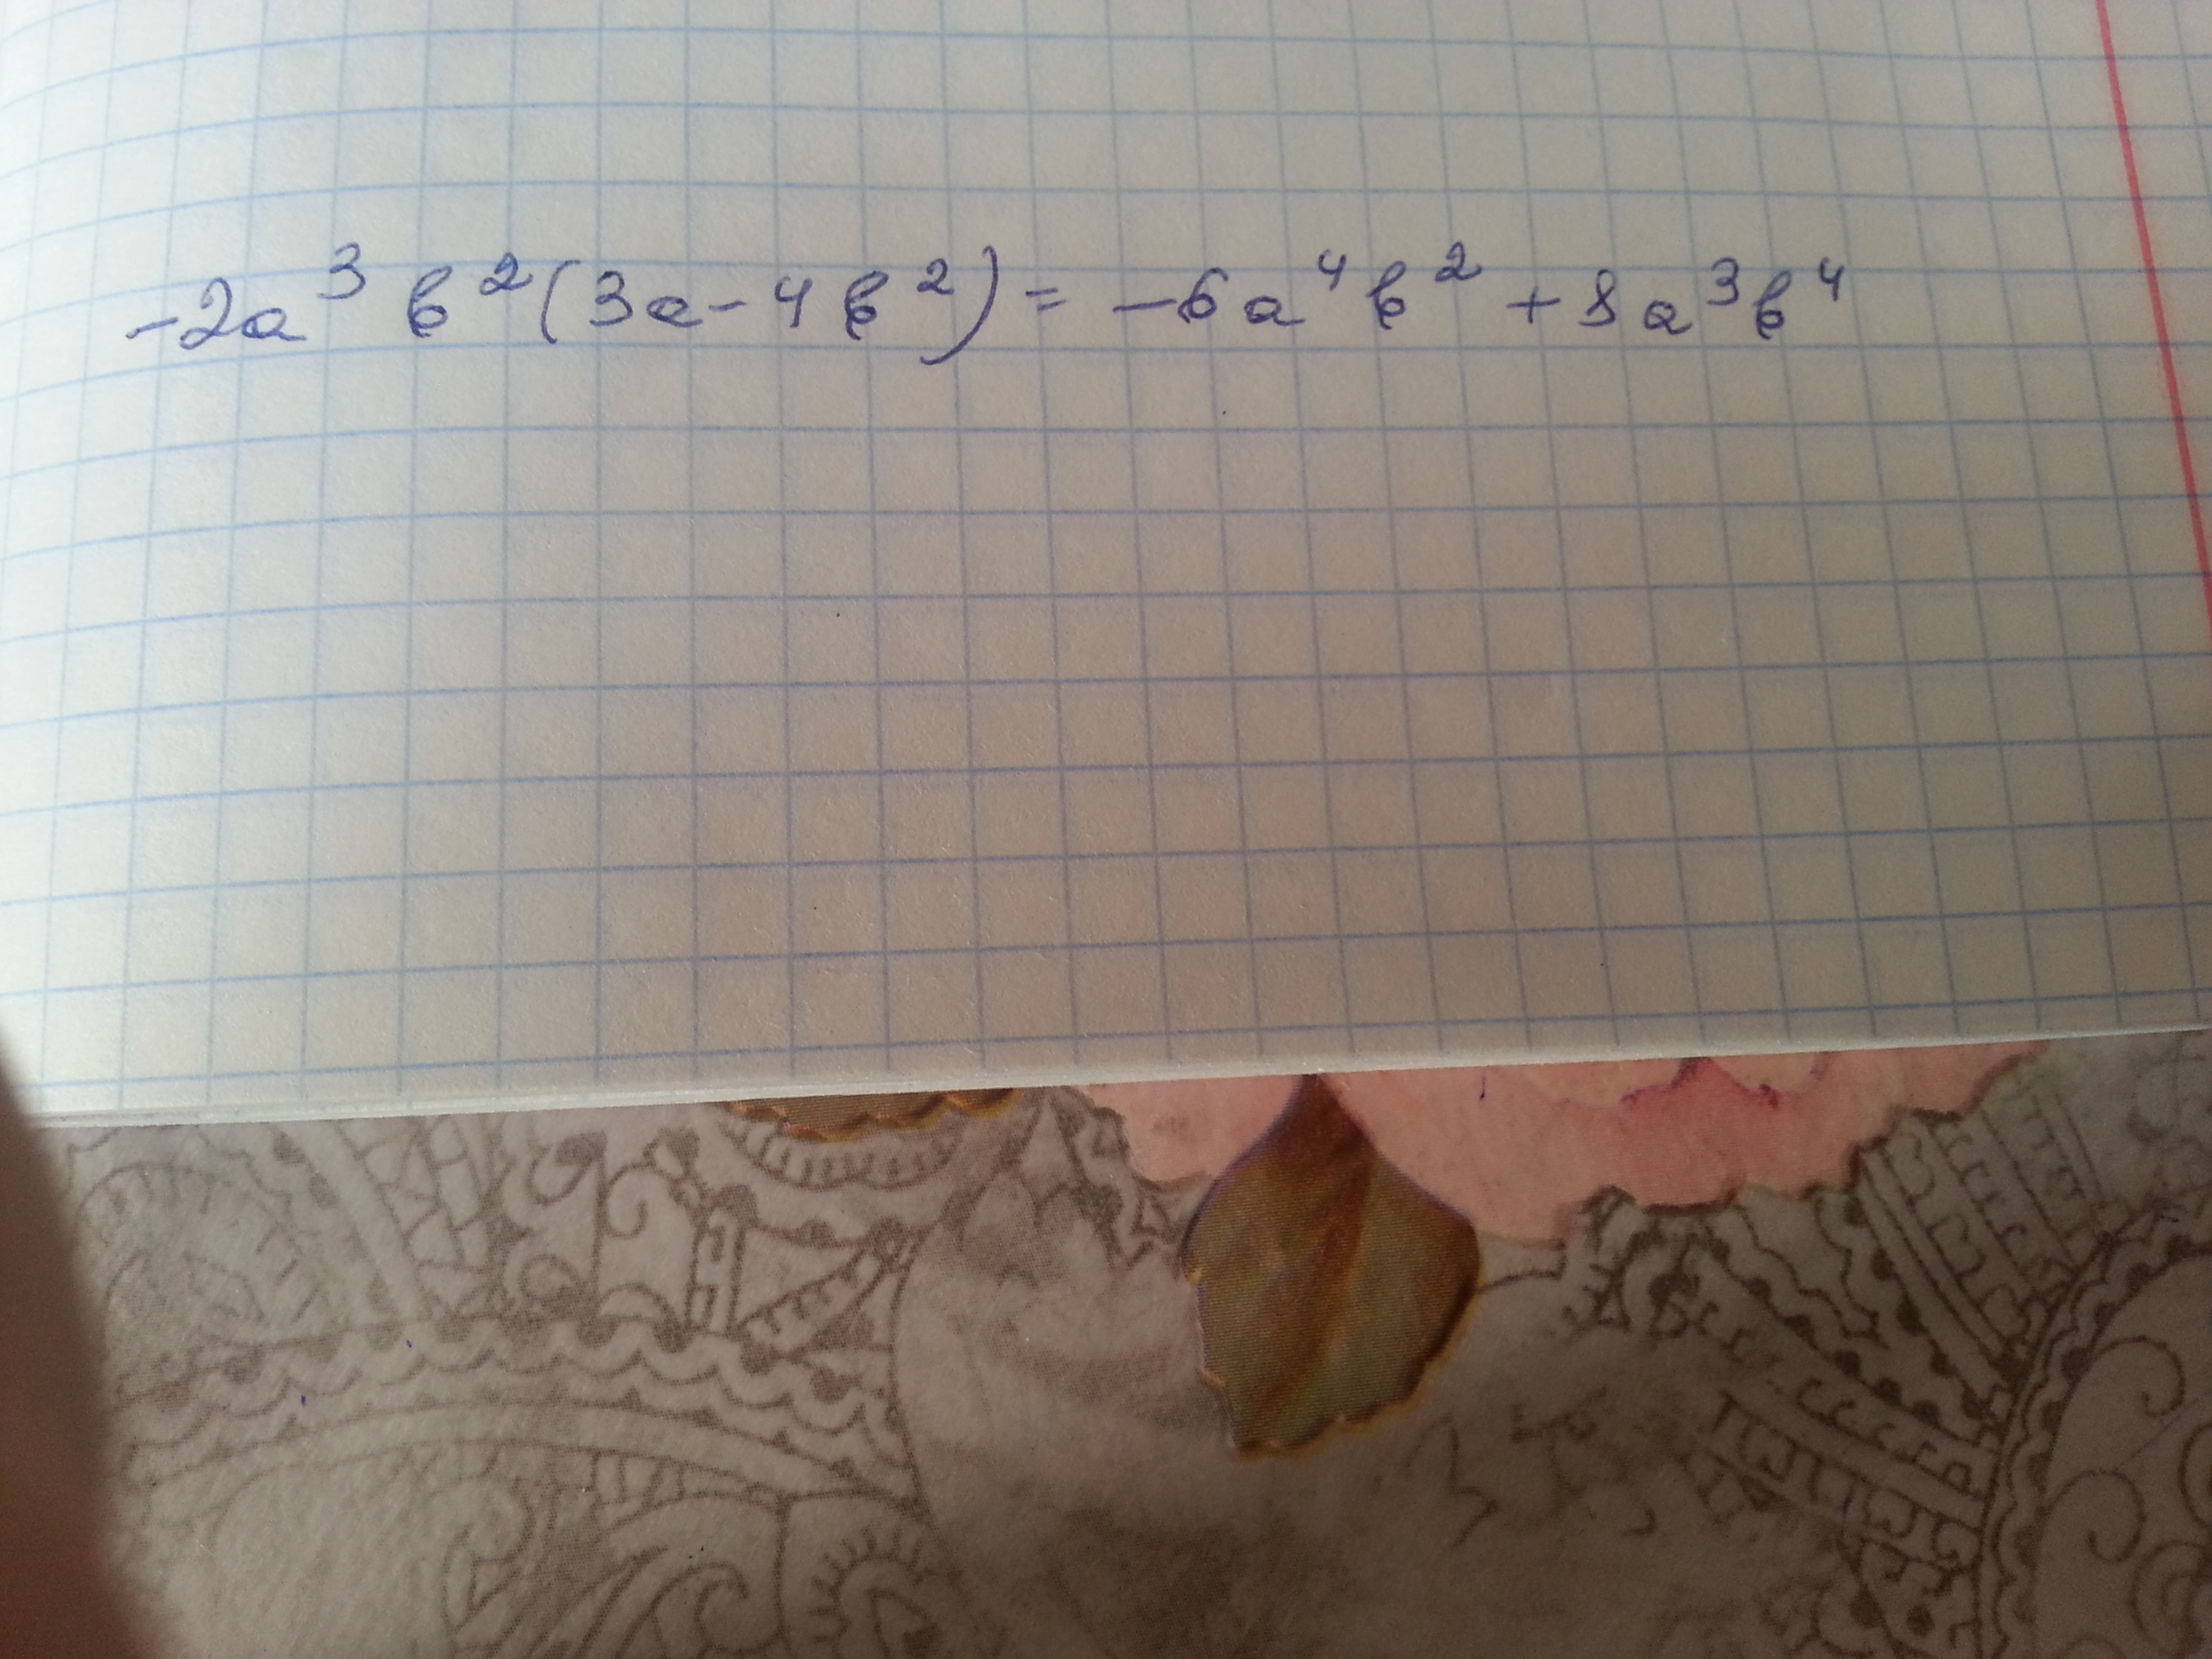 -2a³b²(3a-4b²)= -6a⁴b²+8a³b⁴